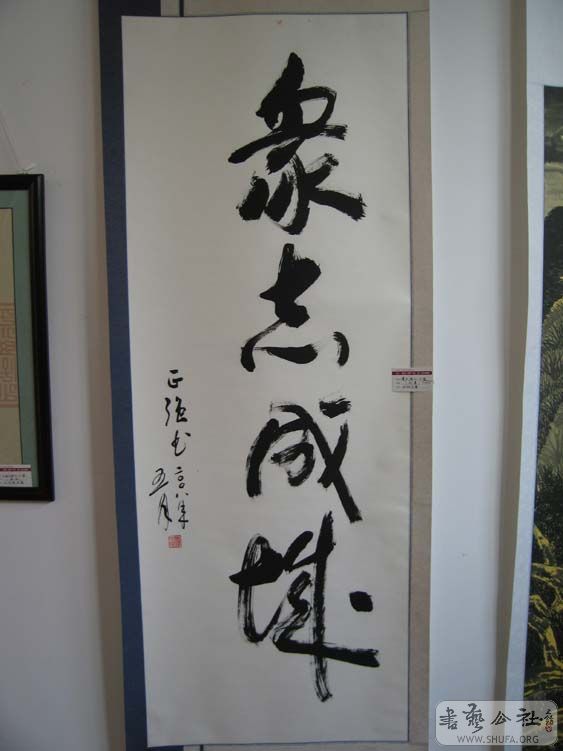 眾志成城
正強书
二〇〇八年
五月
書藝公社
WWW.SHUFA.ORG